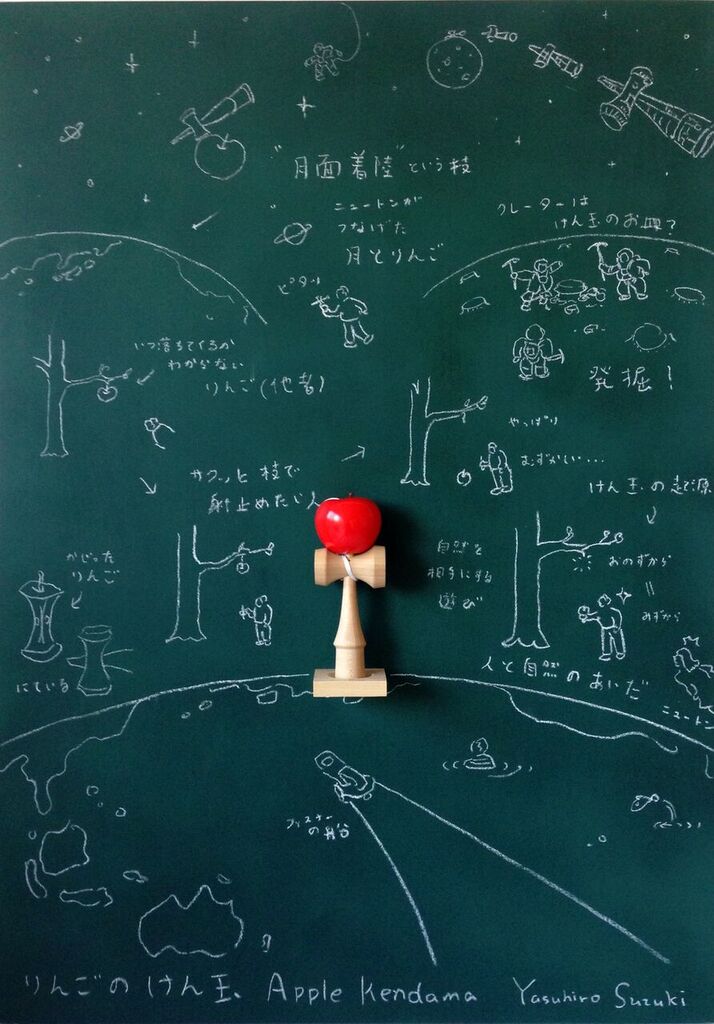 "月面着陸"という技
ニュートンが
つなげた
月とりんご
クレーターは
けん玉のお皿?
ピタッ
いつ落ちてくるか
わからない
りんご(他者)
発掘!
やっぱり
むずかしい...
サクッと枝で
射止めたい人
けん玉の起源
かじった
りんご
にている
自然を
相手にする
遊び
おのずから
=
みずから
人と自然のあいだ
ニュートン
ファスナー
の船
りんごのけん玉 Apple Kendama Yasuhiro Suzuki